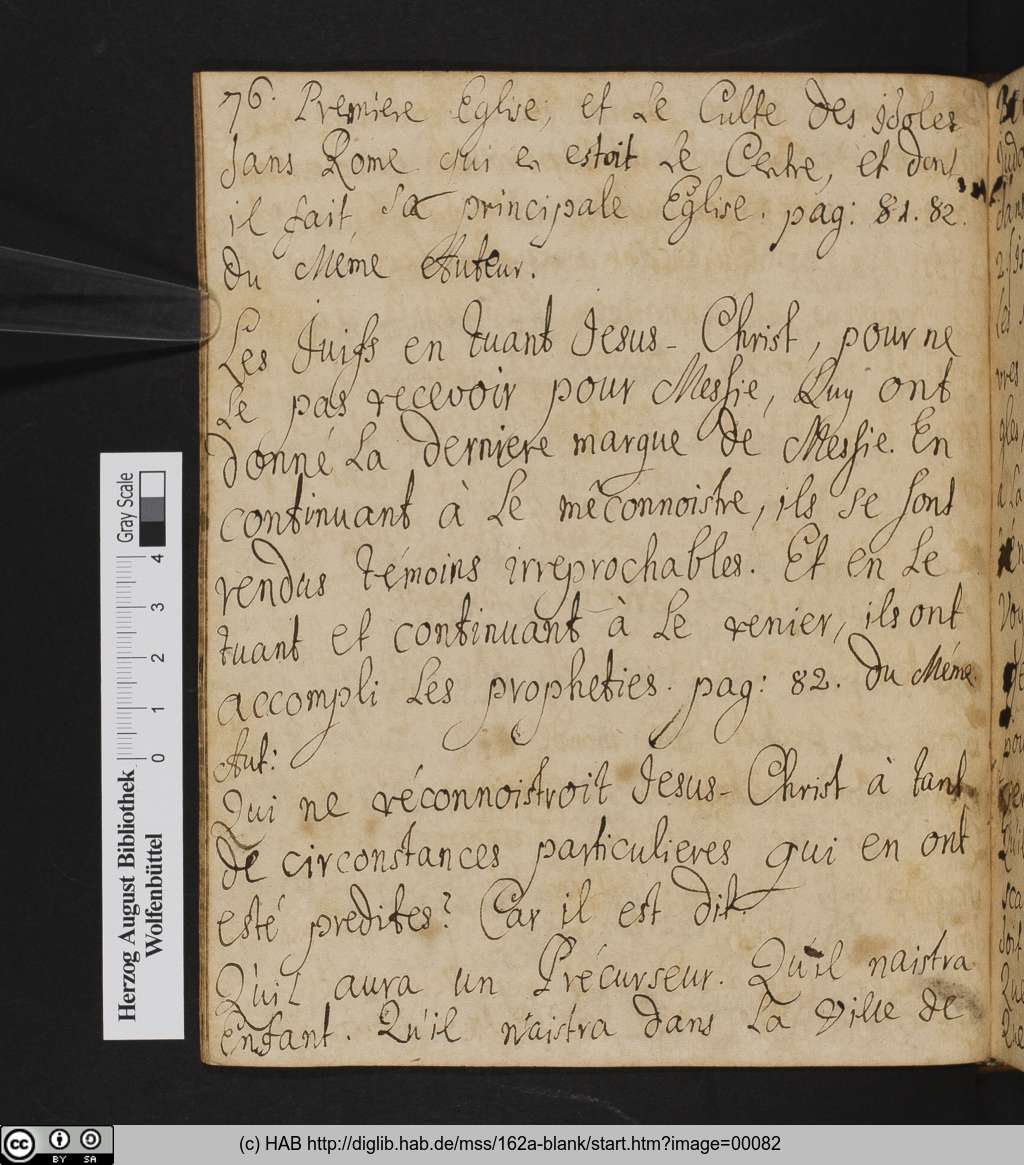 76. Premiere Eglise, et Le Culte Des Idoles
dans Rome qui en estoit Le Centre, et dont
il fait sa principale Eglise. pag: 81. 82.
Du Méme Auteur.
Les Juifs en tuant Jesus-Christ, pour ne
Le pas recevoir pour Messie, Luy ont
donné La derniere marque de Messie. En
continuant à Le mêconnoistre, ils se sont
rendus témoins irreprochables. Et en Le
tuant et continuant à Le renier, ils ont
accompli Les propheties. pag: 82. Du Méme
Aut:
Qui ne réconnoistroit Jesus-Christ à tant
de circonstances particulieres qui en ont
esté predites? Car il est dit.
Qu'il aura un Précurseur. Qu'il naistra
Enfant. Qu'il naistra dans La Ville de
Herzog August Bibliothek
Wolfenbüttel
Gray Scale
0 1 2 3 4
cc BY SA
(c) HAB http://diglib.hab.de/mss/162a-blank/start.htm?image=00082